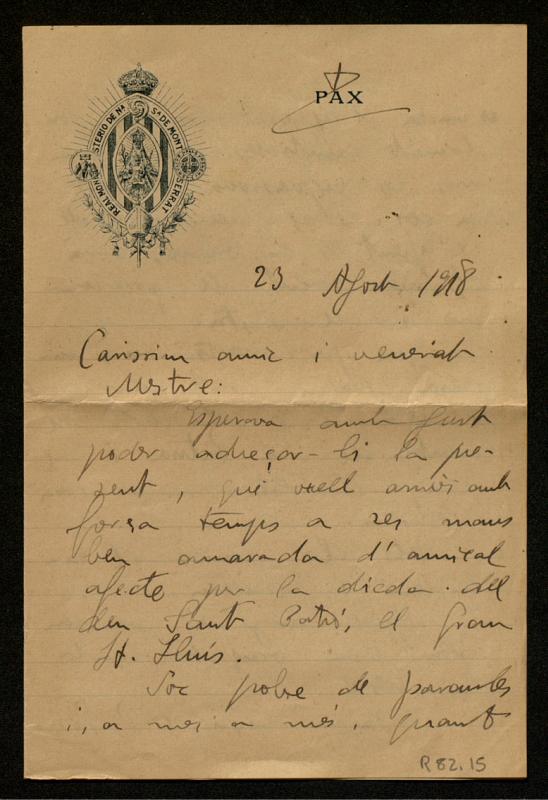 PAX
REAL MONASTERIO DE Nª Sª DE MONTSERRAT
23 Agost 1918
Caríssim amic i venerat
Mestre:
Esperava amb gust
poder adreçar-li la pre-
sent, que vull arribi amb
força temps a ses mans
ben amarada d'amical
afecte per la diada del
seu Sant Patró, el gran
St. Lluís.
Soc pobre de paraules
i, a mes a més, quant
R 82.15